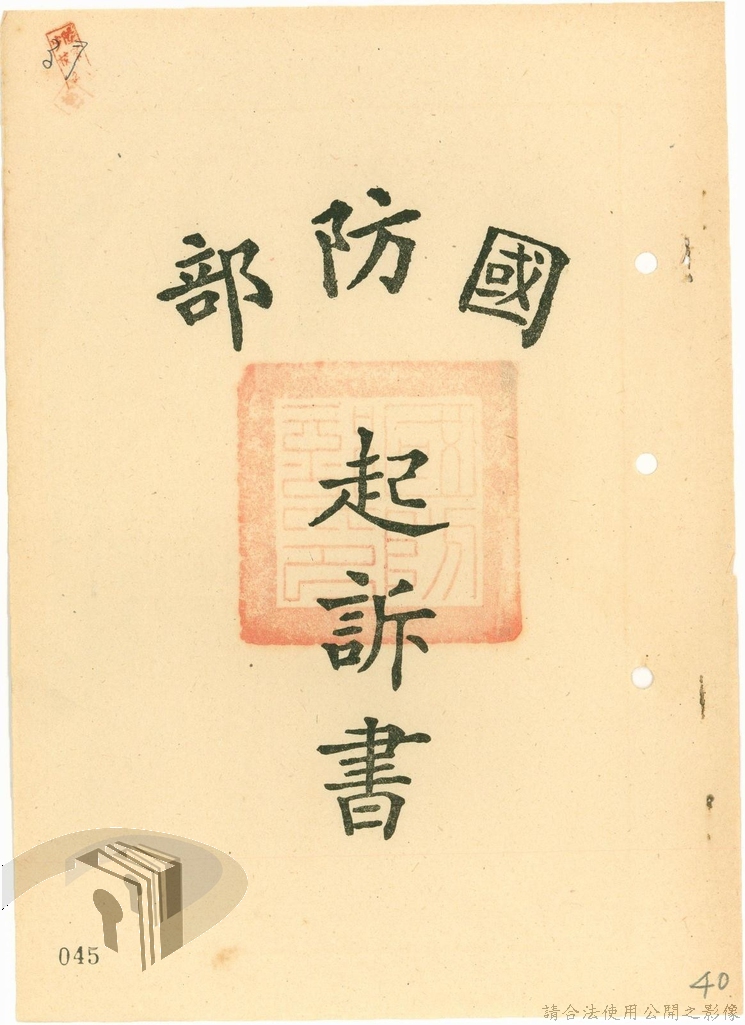 國防部
起訴書
045
40
請合法使用公開之影像